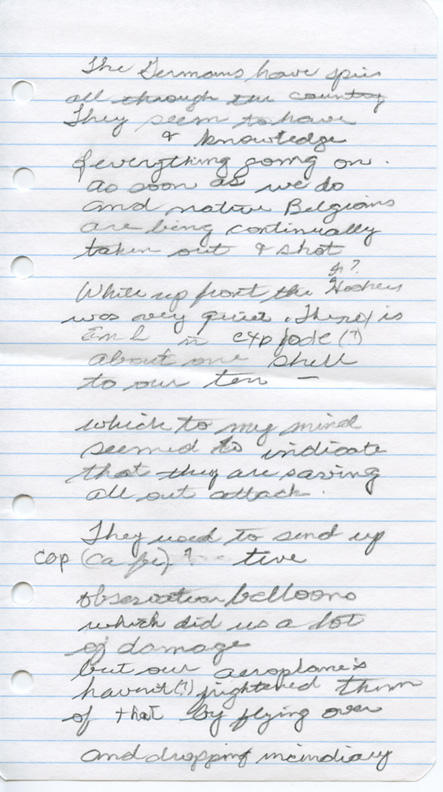 The Germans have spies
all through the country
They seem to have
& knowledge
of everything going on.
as soon as we do
and native Belgians
are being continually
taken out & shot
While up front the
was very quiet. There is
in explode (?)
about one shell
to our ten —
which to my mind
seemed to indicate
that they are saving
all out attack.
They used to send up
cap (ca ) ? - - tive
observation balloons
which did us a lot
of damage
but our aeroplanes
havent (?) frightened them
of that by flying over
and dropping incindiary